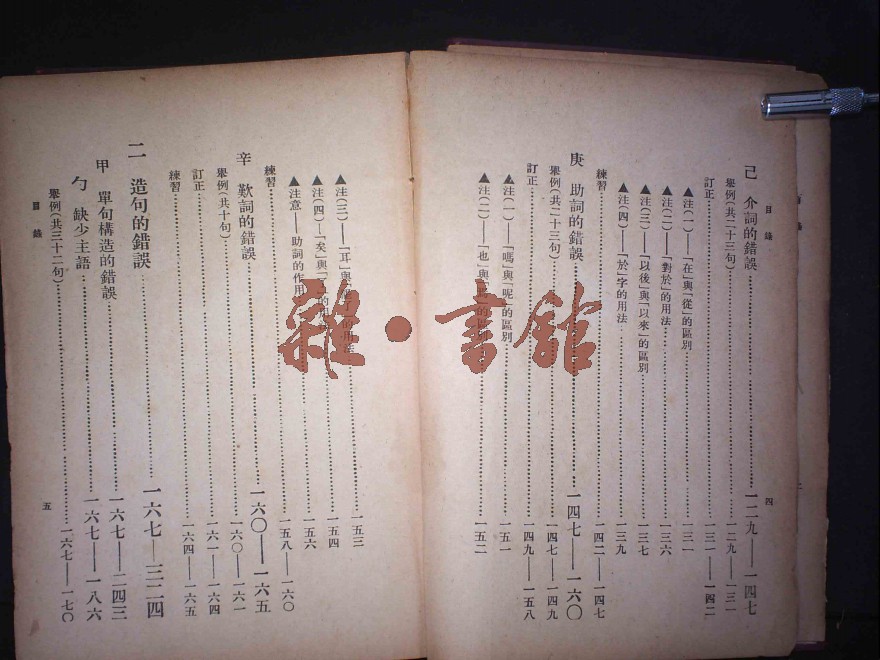 目錄
四
己 介詞的錯誤⋯⋯一二九——一四七
舉例(共二十三句)⋯⋯一二九——一三一
訂正⋯⋯一三一——一四二
▲注(一)——「在」與「從」的區別⋯⋯一三一
▲注(二)——「對於」的用法⋯⋯一三六
▲注(三)——「以後」與「以來」的區別⋯⋯一三七
▲注(四)——「於」字的用法⋯⋯一三九
練習⋯⋯一四二——一四七
庚 助詞的錯誤⋯⋯一四七——一六〇
舉例(共二十三句)⋯⋯一四七——一四九
訂正⋯⋯一四九——一五八
▲注(一)——「嗎」與「呢」的區別⋯⋯一五一
▲注(二)——「也」與⋯⋯一五二
▲注(三)——「耳」與 的用法⋯⋯一五三
▲注(四)——「矣」與⋯⋯一五四
▲注意——助詞的作用⋯⋯一五六
練習⋯⋯一五八——一六〇
辛 歎詞的錯誤⋯⋯一六〇——一六五
舉例(共十句)⋯⋯一六〇——一六一
訂正⋯⋯一六一——一六四
練習⋯⋯一六四——一六五
二 造句的錯誤⋯⋯一六七——三二四
甲 單句構造的錯誤⋯⋯一六七——二四三
勹 缺少主語⋯⋯一六七——一八六
舉例(共三十二句)⋯⋯一六七——一七〇
目錄
五
雜·書館